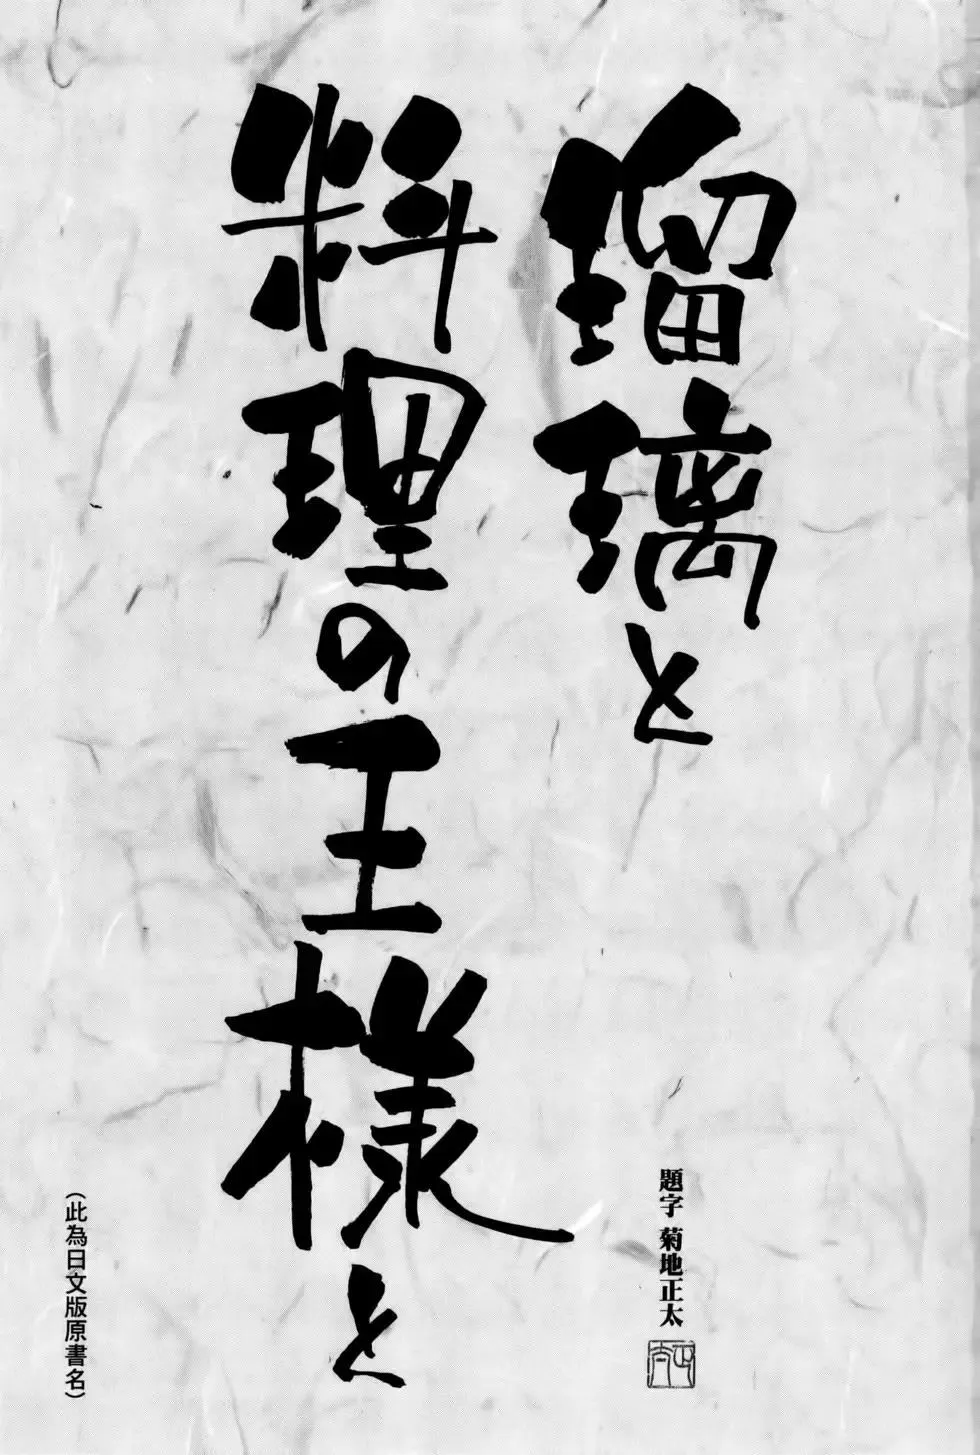 瑠璃と
料理の王様と
題字 菊地正太
(此為日文版原書名)